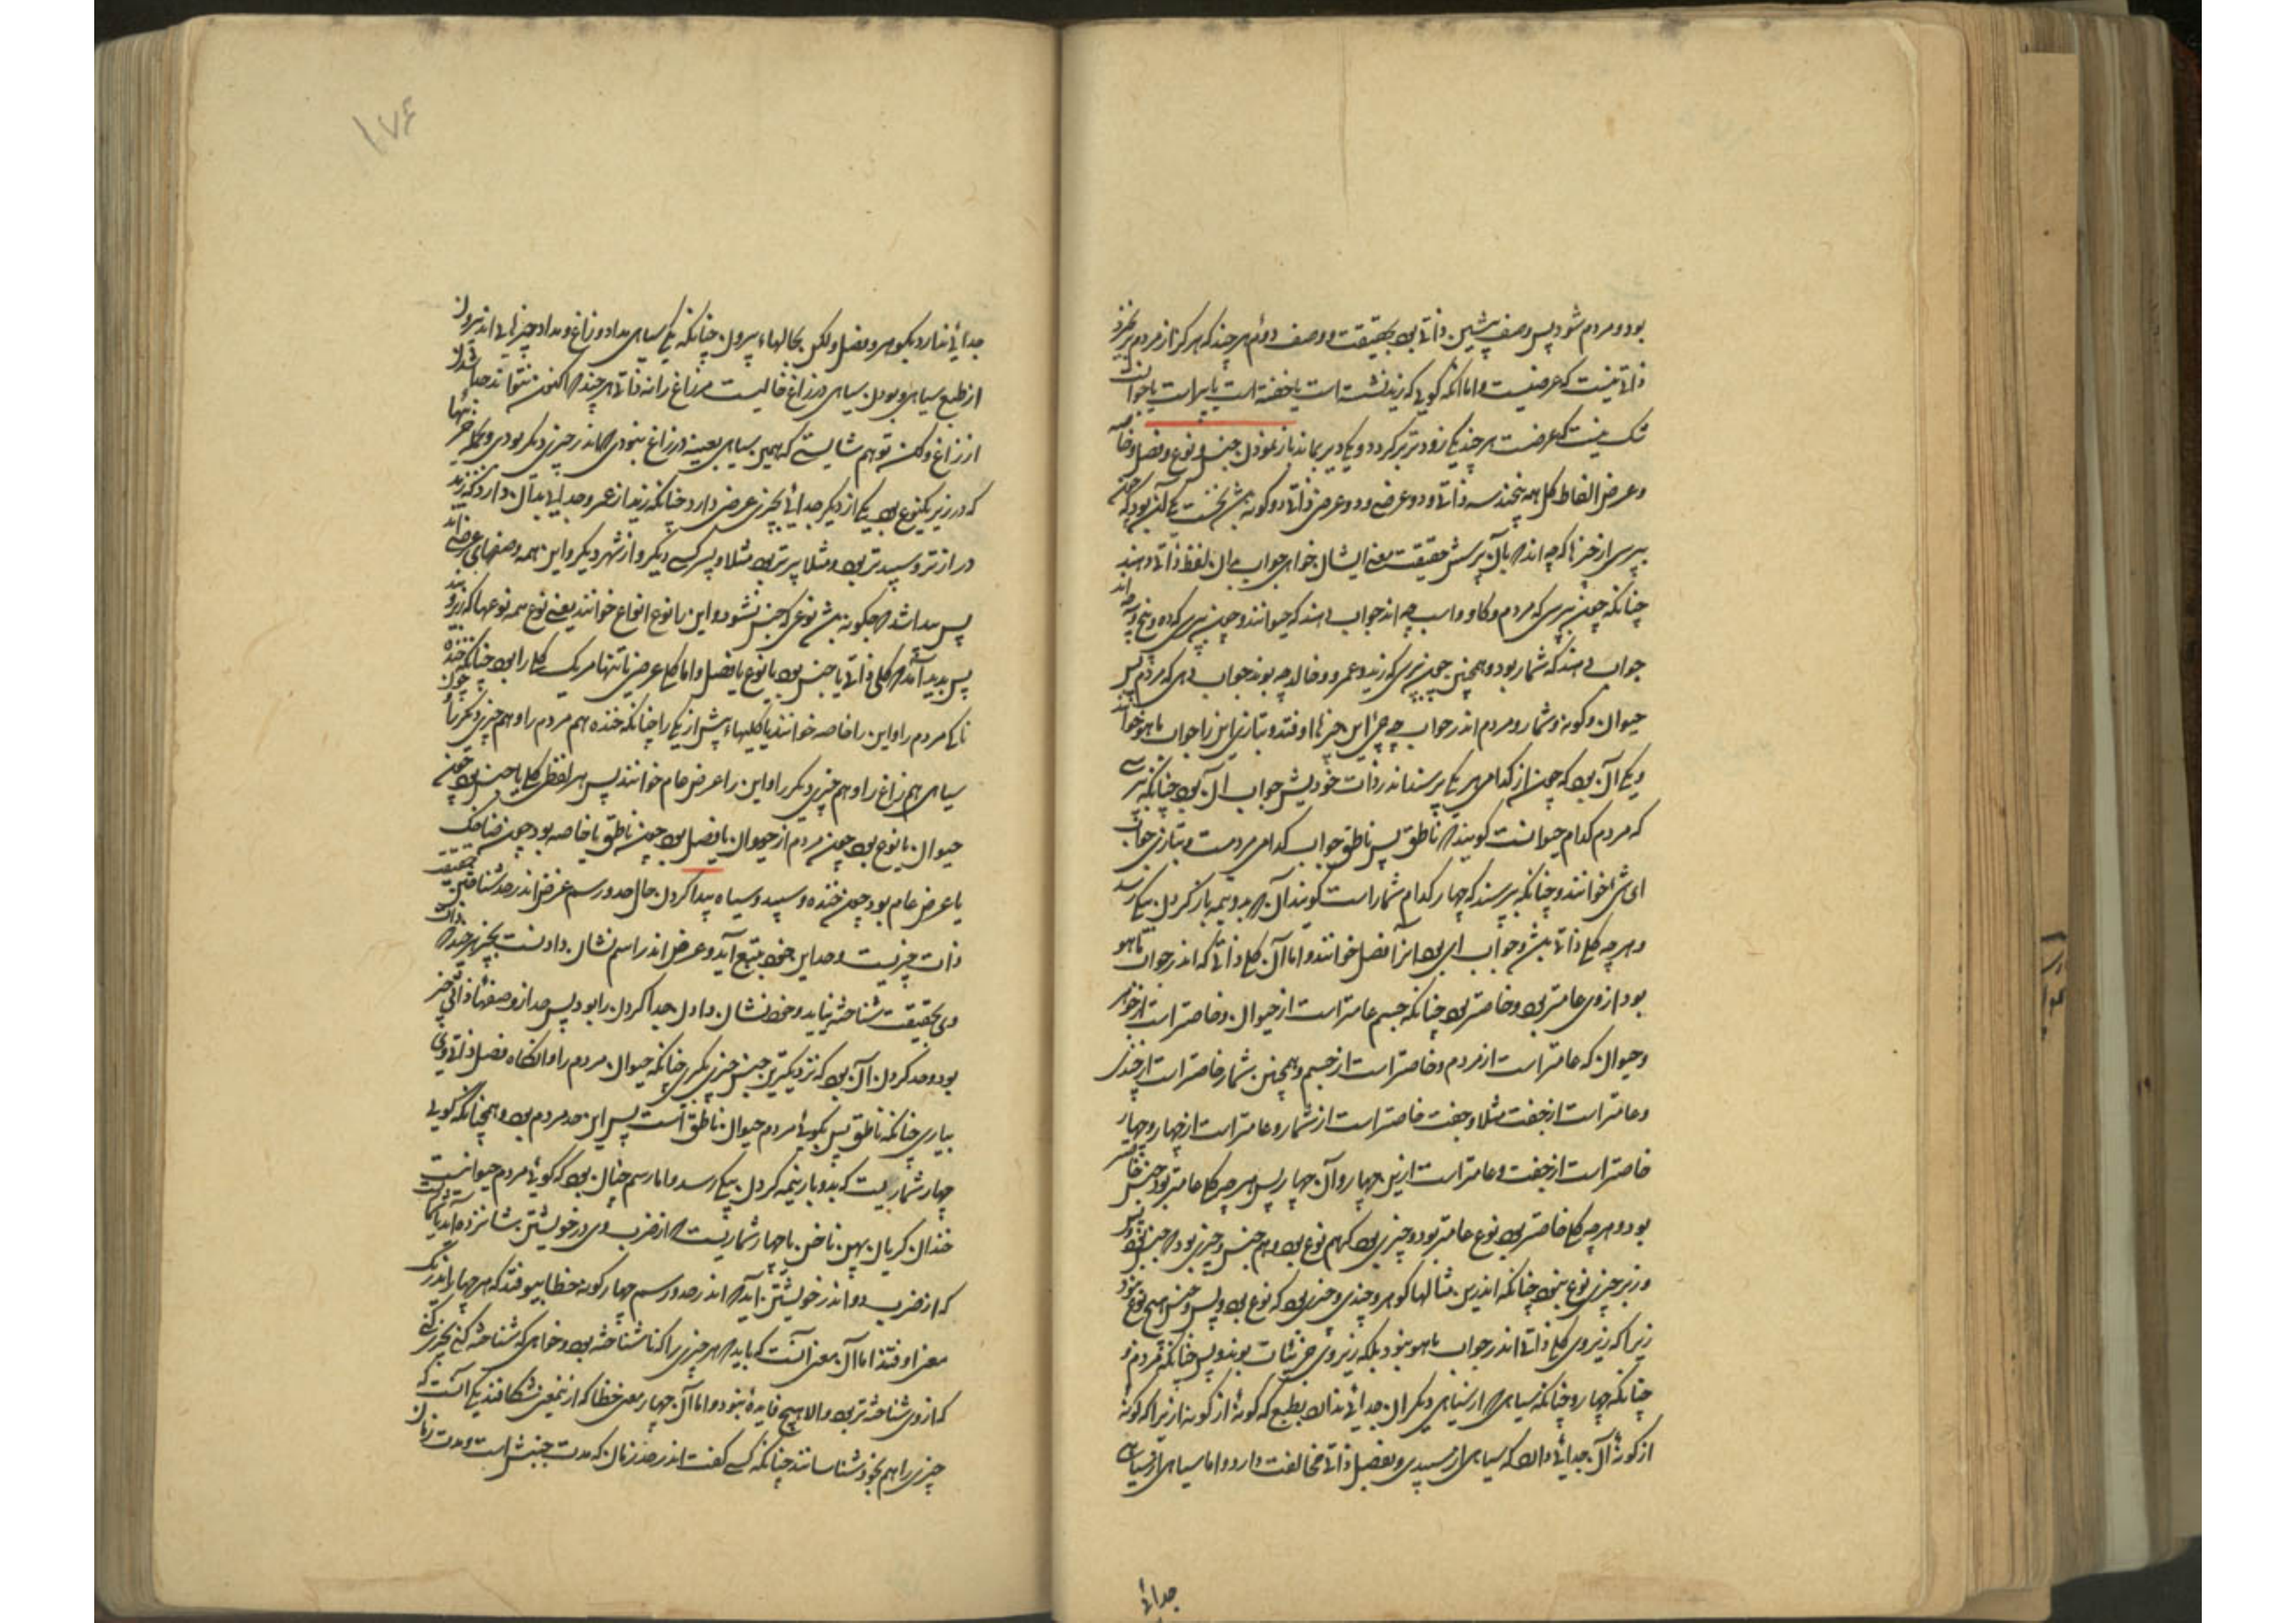 بود و مردم شود پس وصف پیشین ذاتی بود بحقیقت و وصف دوئم هر چند که هرگز از مردم بر نخیزد
ذاتی نیست که عرضیست و اما آنکه گویی که زید نشسته است یا خفته است یا پیر است یا جوانست
شک نیست که عرضست هر چند یکی زودتر برگردد و یکی دیر بماند باز نمودن جنس و نوع و فصل و خاصه
و عرض الفاظ کلی همه پنجند سه ذاتی و دو عرضی و دو عرض ذاتی دو گونه بش نخست یکی آن بود که چون
بپرسی از چیزها که چه اند که بآن پرسش حقیقت معنی ایشان خواهی جواب بدان لفظ ذاتی دهند
چنانکه چون پرسی که مردم و گاو و اسب چه اند جواب دهند که حیوانند و چون پرسی که ده و پنج و سه چه اند
جواب دهند که شمار بود و همچنین چون پرسی که زید و عمرو و خالد چه بوند جواب دهی که مردم پس
حیوان و گونه و شمار و مردم اندر جواب چه چیز این چیزها اوفتد و بتازی این را جواب ما هو خوانند
و یکی آن بود که چون از کدامی هر یکی پرسند اندر ذات خویش جواب آن بود چنانکه پرسی
که مردم کدام حیوانست گویند که ناطق پس ناطق جواب کدامی مردمست و بتازی جواب
ای شی خوانند و چنانکه پرسند که چهار کدام شمار است گویند آن که بدو نیمه باز کردن بیکی رسد
و هر چه کلی ذاتی بش و جواب ای بود آنرا فصل خوانند و اما آن کلی ذاتی که اندر جواب ما هو
بود از وی عامتر بود و خاصتر بود چنانکه جسم عامتر است از حیوان و خاصتر است از جوهر
و حیوان که عامتر است از مردم و خاصتر است از جسم و همچنین شمار خاصتر است از چندی
و عامتر است از جفت مثلا و جفت خاصتر است از شمار و عامتر است از چهار و چهار
خاصتر است از جفت و عامتر است از این چهار و آن چهار پس هر چه کلی عامتر بود جنس خاصتر
بود و هر چه کلی خاصتر بود نوع عامتر بود و چیزی بود که هم نوع بود و هم جنس و چیزی بود که جنس بود و بس
و زبر چیزی نوع نبود چنانکه اندرین مثالها گوهر و چندی و چیزی بود که نوع بود و بس و جنس هیچ نوع نبود
زیرا که زیر وی کلی ذاتی اندر جواب ما هو نبود بلکه زیر وی جزئیات بوند و بس چنانکه مردم و
چنانکه چهار و چنانکه سیاهی که از سیاهی دیگر آن جدائی ندارد بطبع که گونهٔ از گونه ازیرا که گونه
از گونهٔ آن جدائی دارد که سیاهی از سپیدی و بفصل ذاتی مخالفت دارد و اما سیاهی از سیاهی
جدائی
۱۷۶
جدائی ندارد بگوهر و فصل و لکن بحالهاء بیرون چنانکه یکی سیاهی مداد و زاغ و مداد چیزهایی اند بیرون
از طبع سیاهی و بودن سیاهی در زاغ حالیست مر زاغ را نه ذاتی هر چند که اکنون نتواند جدا شدن
از زاغ و لکن بتوهم شایستی که همین سیاهی بعینه در زاغ نبودی که اندر چیزی دیگر بودی و بجمله چیزها
که در زیر یکنوع بود یکی از دیگر جدائی بچیزی عرضی دارد چنانکه زید از عمرو جدایی بدان دارد که زید
درازتر و سپیدتر بود و مثلا پیرتر بود مثلا و پسر کسی دیگر و از شهر دیگر و این همه وصفهای عرضی اند
پس پیدا شد که چگونه بش نوعی که جنس نشود و این را نوع انواع خوانند یعنی نوع همه نوعها که زبر ویند
پس پدید آمد که کلی ذاتی یا جنس بود یا نوع یا فصل و اما کلی عرضی یا تنها مر یک کلی را بود چنانکه خنده
ناکی مردم را و این را خاصه خوانند یا کلیهاء بیش از یکی را چنانکه خنده هم مردم را و هم چیزی دیگر را و چون
سیاهی هم زاغ را و هم چیزی دیگر را و این را عرض عام خوانند پس هر لفظی کلی یا جنس بود چون
حیوان یا نوع بود چون مردم از حیوان یا فصل بود چون ناطق یا خاصه بود چون ضاحک
یا عرض عام بود چون خنده و سپید و سیاه پیدا کردن حال حد و رسم غرض اندر حد شناختن حقیقت
ذات چیزیست و جدایی خود بتبع آید و غرض اندر اسم نشان دادنست بچیز هر چند که ذات
وی بحقیقت شناخته نیاید و خود نشان دادن جدا کردن را بود پس حد از وصفهاء ذاتی چیز
بود و حد کردن آن بود که نزدیکترین جنس چیز بگیری چنانکه حیوان مردم را و آنگاه فصل ذاتی وی
بیاری چنانکه ناطق پس بگویی مردم حیوان ناطق است پس این حد مردم بود و همچنانکه گویی
چهار شماریست که بدو بار نیمه کردن بیکی رسد و اما رسم چنان بود که گویی مردم حیوانیست
خندان گریان پهن ناخن یا چهار شماریست که از ضرب وی در خویشتن شانزده آید یا شماریست
که از ضرب دو اندر خویشتن آید که اندر حد و رسم چهار گونه خطا بیوفتد که هر چهار اندر یک
معنی اوفتند اما آن معنی آنست که باید که هر چیزی را که ناشناخته بود و خواهی که شناخته کنی بچیزی کنی
که از وی شناخته تر بود والا هیچ فایده نبود و اما آن چهار معنی خطا که ازینمعنی شکافند یکی آنست که
چیزی را هم بخود شناسانند چنانکه کسی گفت اندر حد زمان که مدت جنبش است و مدت زمان